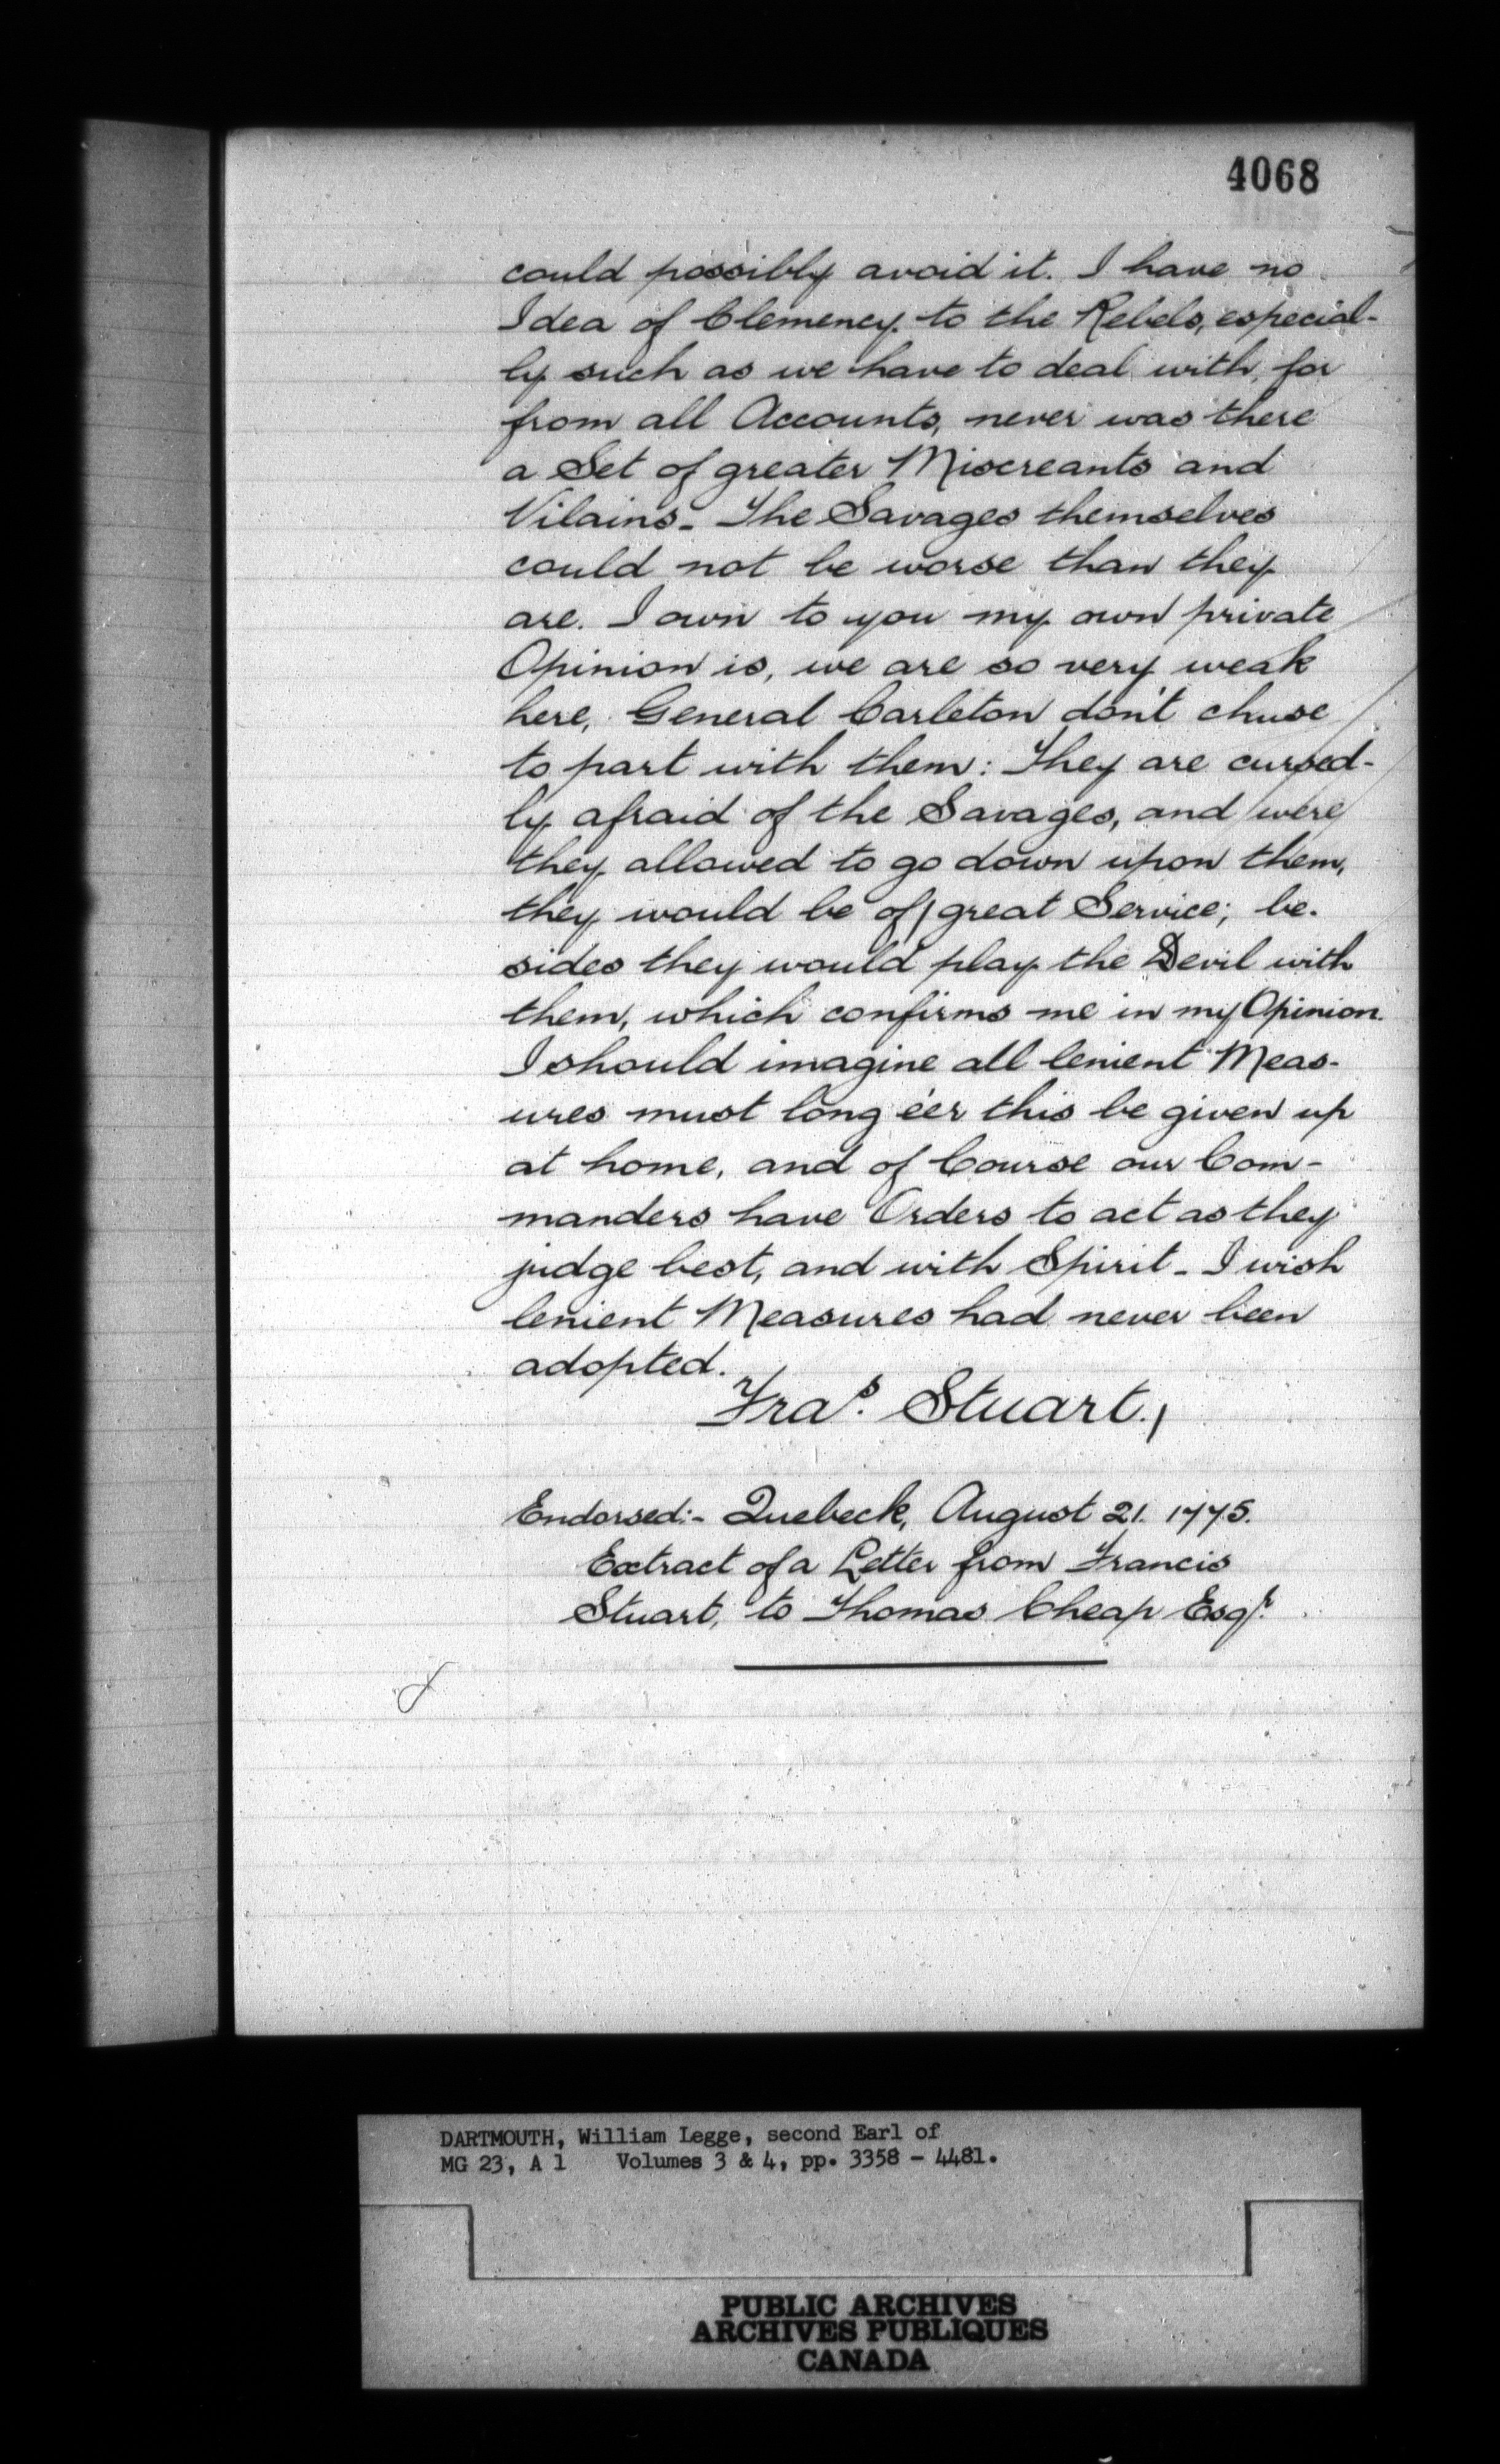 4068
could possibly avoid it. I have no
Idea of Clemency to the Rebels, especial-
ly such as we have to deal with, for
from all Accounts, never was there
a Set of greater Miscreants and
Vilains_ The Savages themselves
could not be worse than they
are. I own to you my own private
Opinion is, we are so very weak
here, General Carleton don't chuse
to part with them: They are cursed-
ly afraid of the Savages, and were
they allowed to go down upon them,
they would be of great Service; be-
sides they would play the Devil with
them, which confirms me in my Opinion.
I should imagine all lenient Meas-
ures must long e'er this be given up
at home, and of Course our Com-
manders have Orders to act as they
judge best, and with Spirit_ I wish
lenient Measures had never been
adopted.
Fraˢ. Stuart.,
Endorsed:- Quebeck, August 21. 1775.
Extract of a Letter from Francis
Stuart, to Thomas Cheap Esqʳ.
DARTMOUTH, William Legge, second Earl of
MG 23, A 1 Volumes 3 & 4, pp. 3358 - 4481.
PUBLIC ARCHIVES
ARCHIVES PUBLIQUES
CANADA